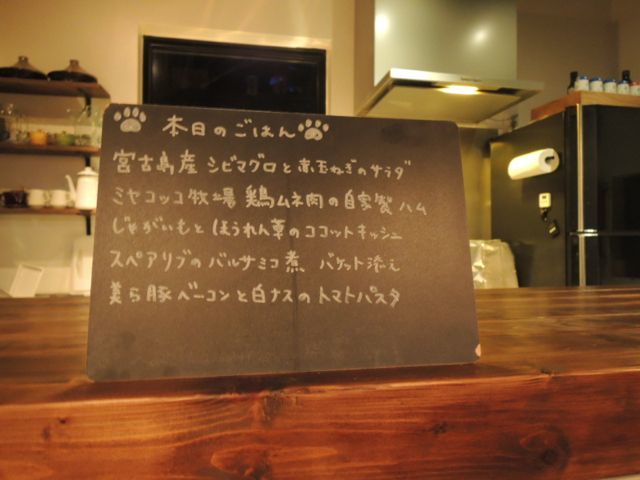 本日のごはん
宮古島産 シビマグロと赤玉ねぎのサラダ
ミヤコッコ牧場 鶏ムネ肉の自家製ハム
じゃがいもと ほうれん草のココットキッシュ
スペアリブのバルサミコ煮 バケット添え
美ら豚ベーコンと白ナスのトマトパスタ